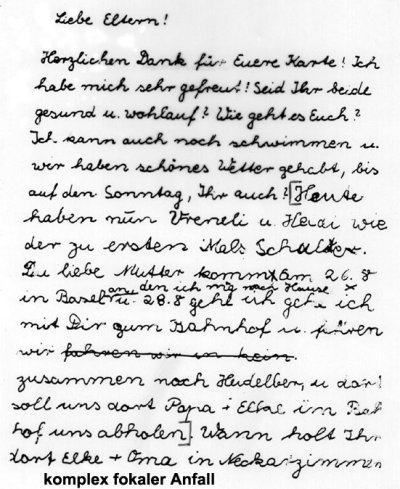 Liebe Eltern!
Herzlichen Dank für Euere Karte! Ich
habe mich sehr gefreut! Seid Ihr beide
gesund u. wohlauf? Wie geht es Euch?
Ich kann auch noch schwimmen u.
wir haben schönes Wetter gehabt, bis
auf den Sonntag, Ihr auch? [Heute
haben nun Vreneli u. Heidi wie
der zu ersten Mal
Du liebe Mutter kommst am 26. 8
den ich Hause
in Basel u. 28. 8 geht ich gehe ich
mit Dir zum Bahnhof u.
wir fahren wir
zusammen nach u dort
soll uns dort Papa +
hof uns abholen] Wann holt Ihr
dort Elke + Oma in Neckarzimmern
komplex fokaler Anfall